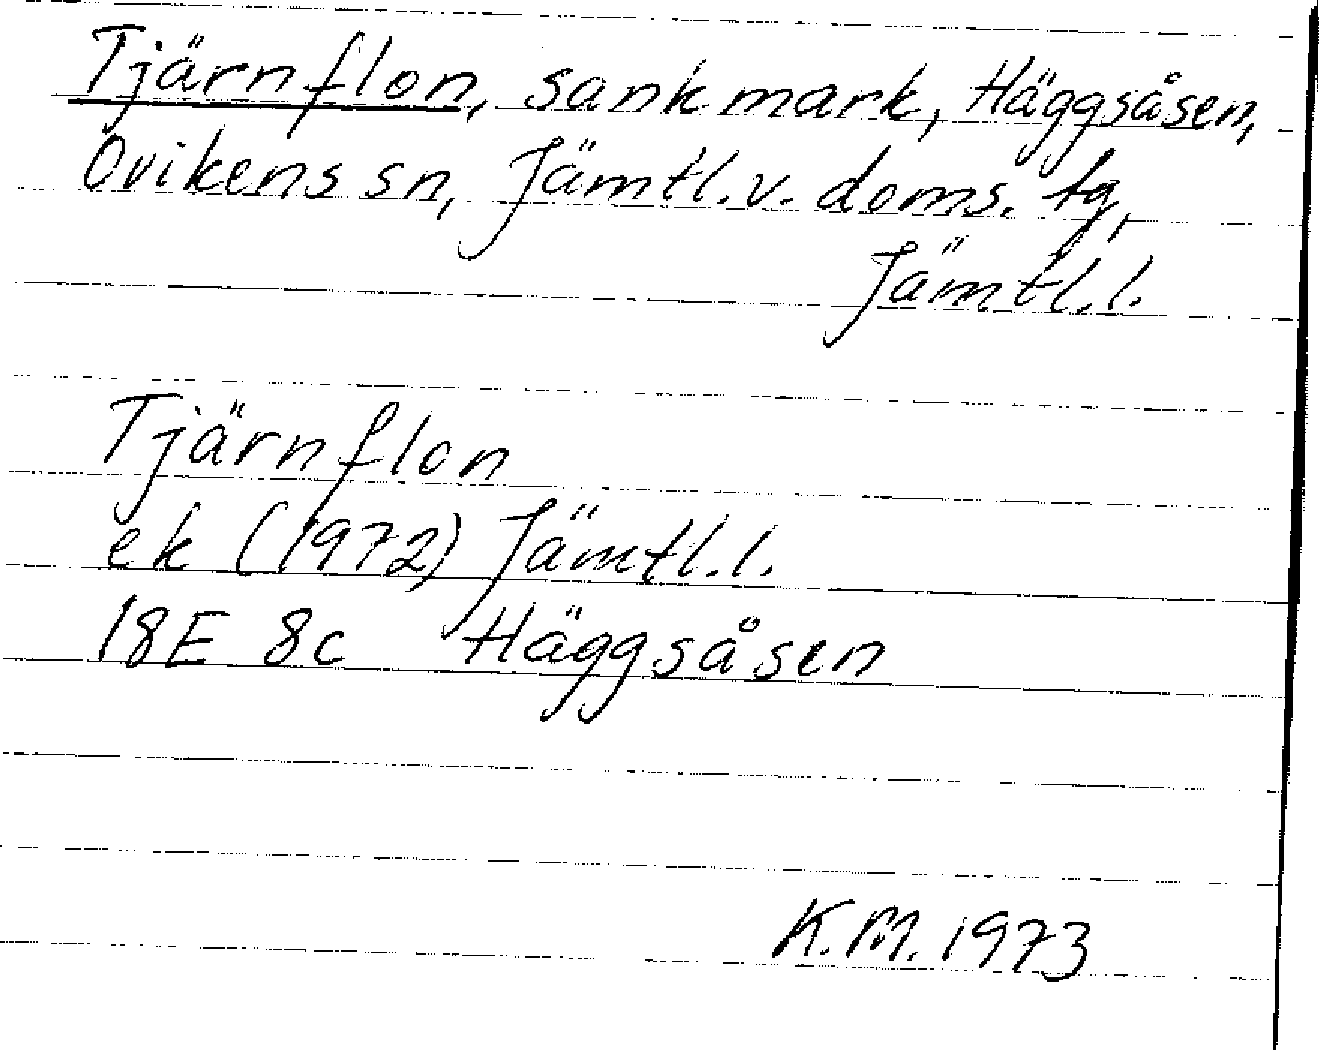 Tjärnflon, sankmark, Häggsåsen,
Ovikens sn, Jämtl. v. doms. tg,
Jämtl. l.
Tjärnflon
ek (1972) Jämtl. l.
18E 8c Häggsåsen
K.M. 1973